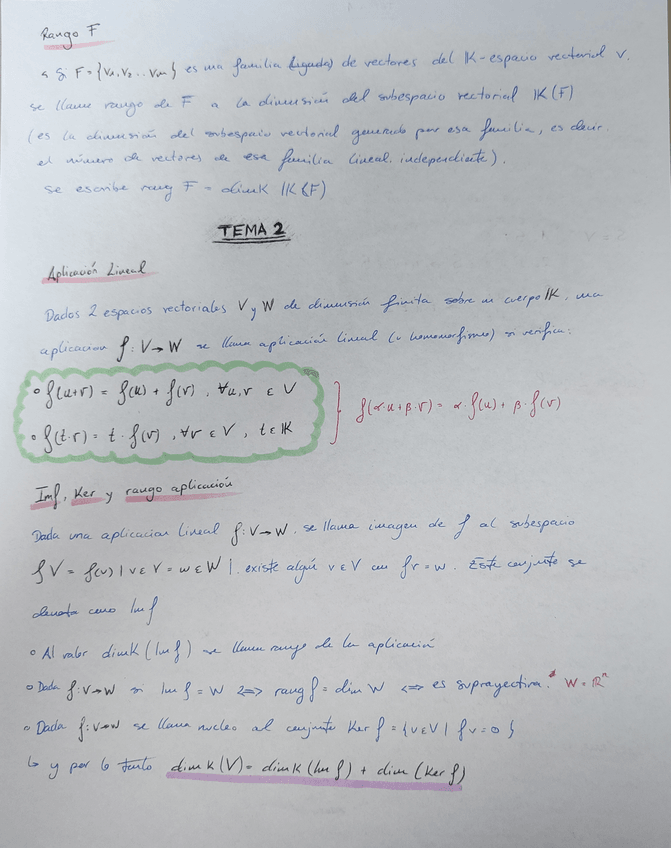 Rango F
Si F = {v₁, v₂ ... vₘ} es una familia (ligada) de vectores del 𝕂-espacio vectorial V.
se llama rango de F a la dimensión del subespacio vectorial 𝕂(F)
(es la dimensión del subespacio vectorial generado por esa familia, es decir.
el número de vectores de esa familia lineal. independiente).
se escribe rang F = dimK 𝕂(F)
TEMA 2
Aplicación Lineal
Dados 2 espacios vectoriales V y W de dimensión finita sobre un cuerpo 𝕂, una
aplicacion f: V→W se llama aplicación lineal (u homomorfismo) si verifica:
o f(u+v) = f(u) + f(v), ∀u,v ∈ V
o f(t·v) = t · f(v), ∀v ∈ V, t ∈ 𝕂
f(α·u + β·v) = α·f(u) + β·f(v)
Imf, Ker y rango aplicación
Dada una aplicacion lineal f: V→W. se llama imagen de f al subespacio
f V = f(v) | v ∈ V = w ∈ W |. existe algún v ∈ V con f v = w. Este conjunto se
denota como Im f
o Al valor dimK (Im f) se llama rango de la aplicación
o Dada f: V→W si Im f = W <=> rang f = dim W <=> es suprayectiva.* W = ℝⁿ
o Dada f: V→W se llama nucleo al conjunto Ker f = {v∈V | f v = 0}
↳ y por lo tanto dim K (V) = dim K (Im f) + dim (Ker f)